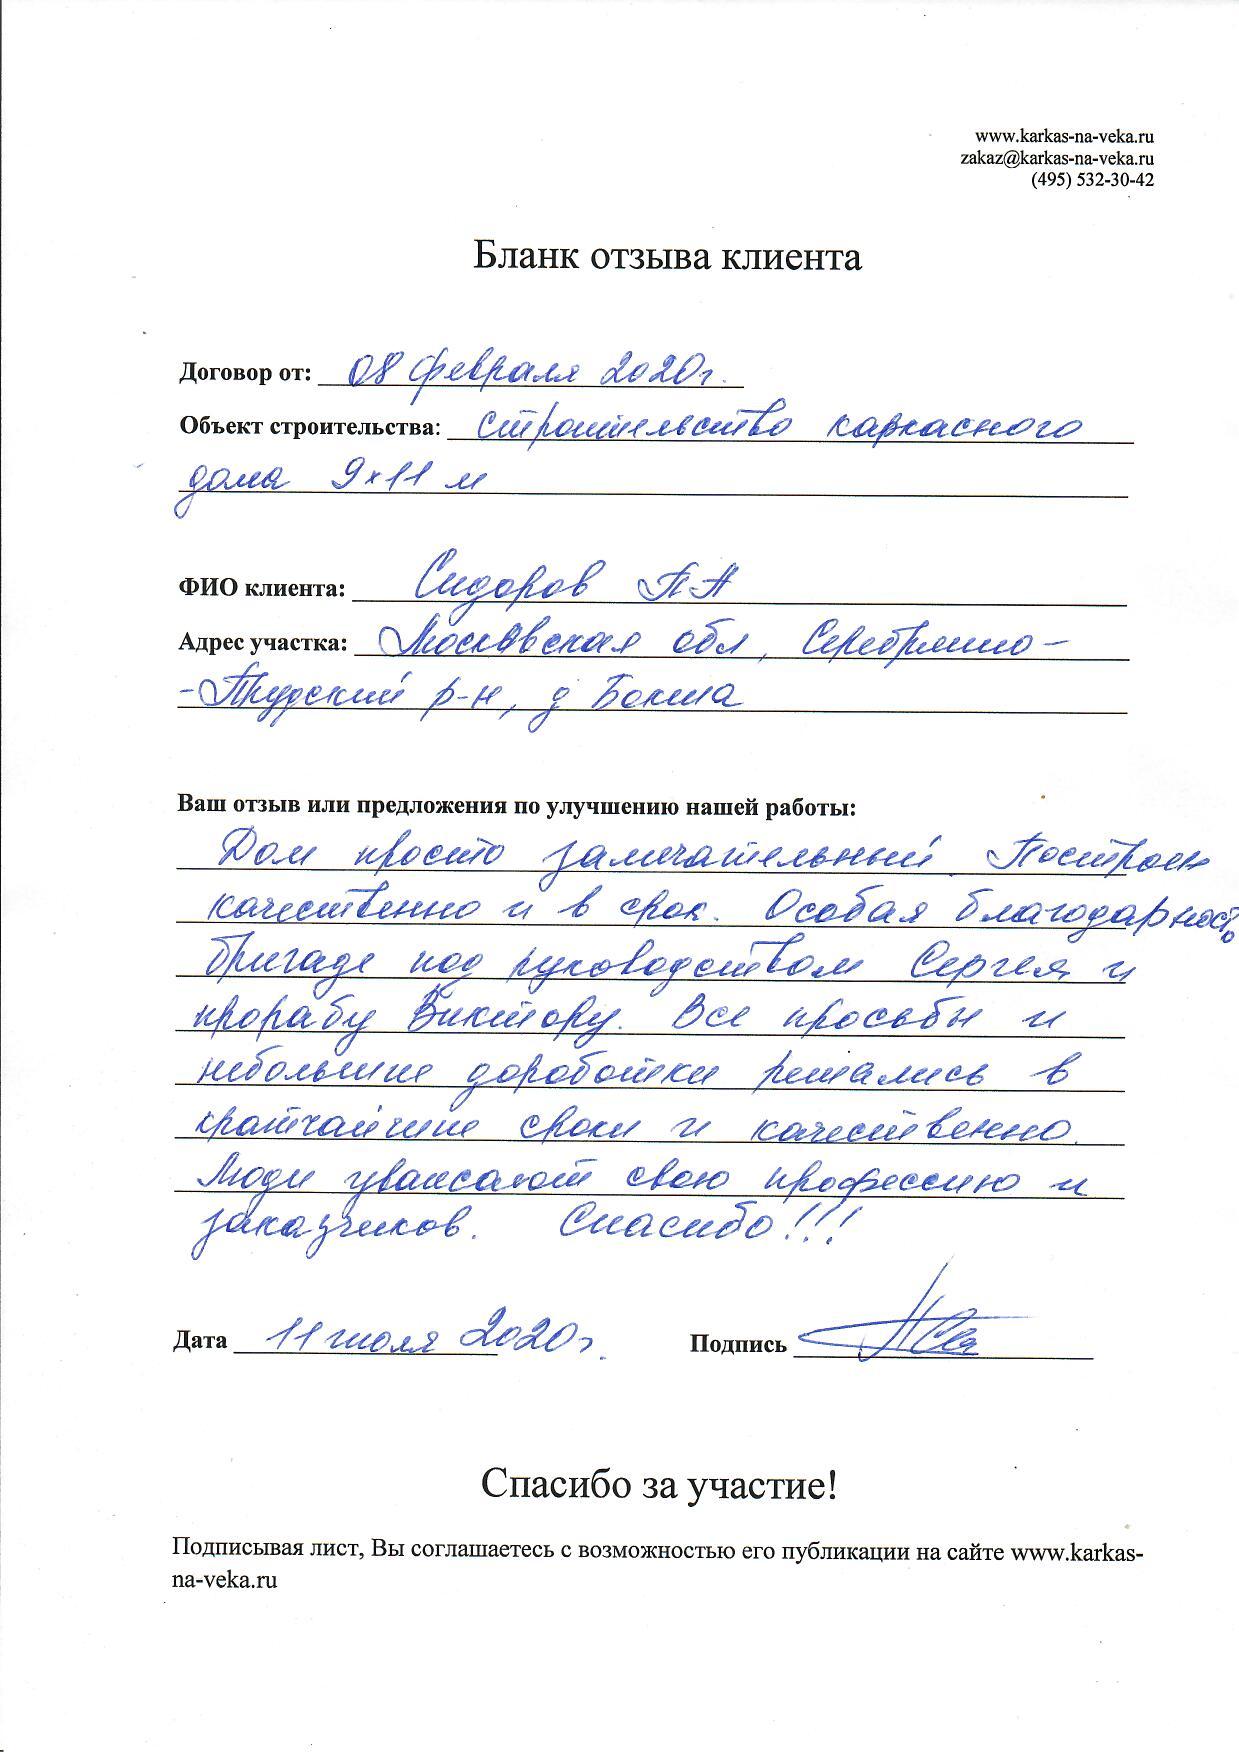 www.karkas-na-veka.ru
zakaz@karkas-na-veka.ru
(495) 532-30-42
Бланк отзыва клиента
Договор от: 08 февраля 2020г.
Объект строительства: строительство каркасного
дома 9х11 м
ФИО клиента: Сидоров П А
Адрес участка: Московская обл, Серебряно-
-Прудский р-н, д
Ваш отзыв или предложения по улучшению нашей работы:
Дом просто замечательный. Построен
качественно и в срок. Особая благодарность
бригаде под руководством Сергея и
прорабу Виктору. Все просьбы и
небольшие доработки решались в
кратчайшие сроки и качественно.
Люди уважают свою профессию и
заказчиков. Спасибо!!!
Дата 11 июля 2020г. Подпись
Спасибо за участие!
Подписывая лист, Вы соглашаетесь с возможностью его публикации на сайте www.karkas-
na-veka.ru